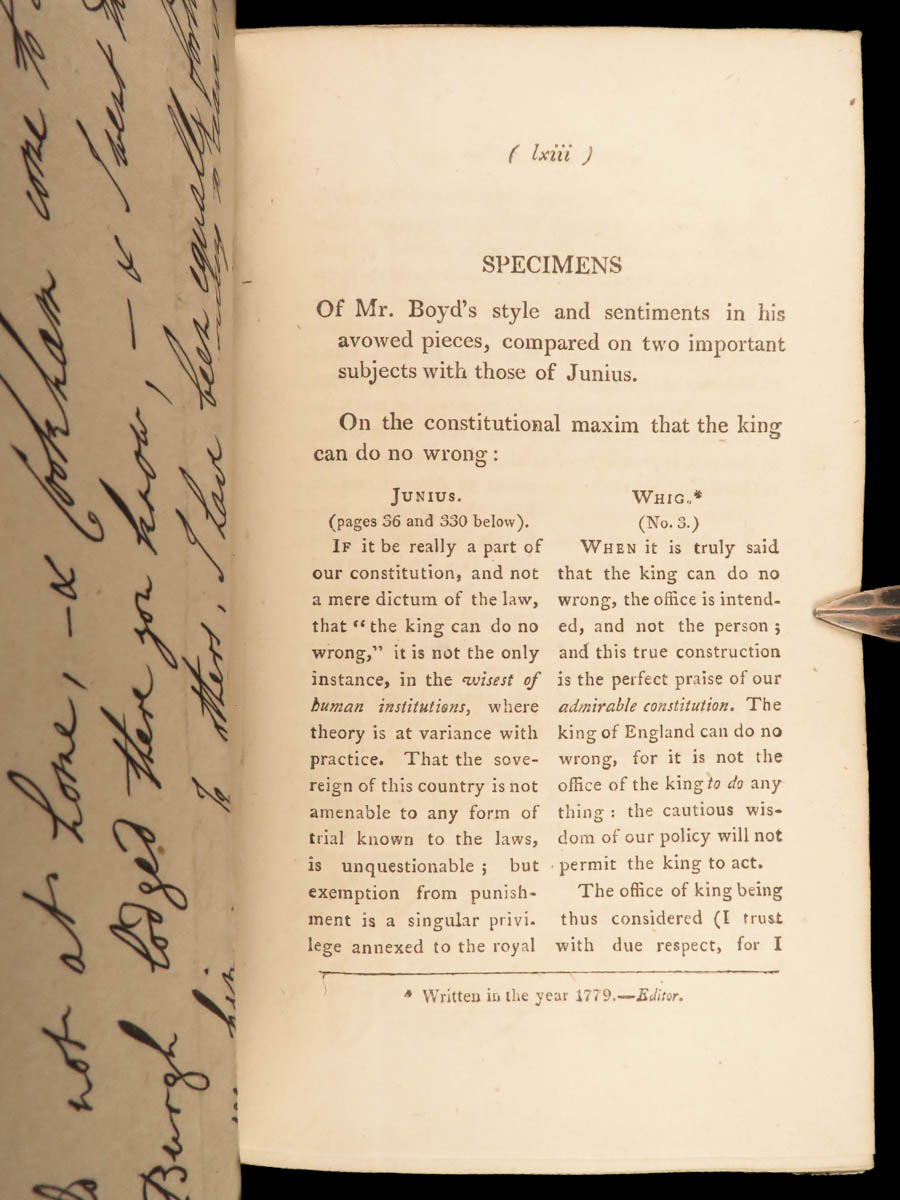 ( lxiii )
SPECIMENS
Of Mr. Boyd's style and sentiments in his
avowed pieces, compared on two important
subjects with those of Junius.
On the constitutional maxim that the king
can do no wrong :
JUNIUS.
(pages 36 and 330 below).
IF it be really a part of
our constitution, and not
a mere dictum of the law,
that “the king can do no
wrong,” it is not the only
instance, in the wisest of
human institutions, where
theory is at variance with
practice. That the sove-
reign of this country is not
amenable to any form of
trial known to the laws,
is unquestionable ; but
exemption from punish-
ment is a singular privi-
lege annexed to the royal
WHIG.*
(No. 3.)
WHEN it is truly said
that the king can do no
wrong, the office is intend-
ed, and not the person ;
and this true construction
is the perfect praise of our
admirable constitution. The
king of England can do no
wrong, for it is not the
office of the king to do any
thing : the cautious wis-
dom of our policy will not
permit the king to act.
The office of king being
thus considered (I trust
with due respect, for I
* Written in the year 1779.—Editor.
not at home, - & Cookham come to
Burgh lodged there you know, - & I went
To others, I have been equally
him